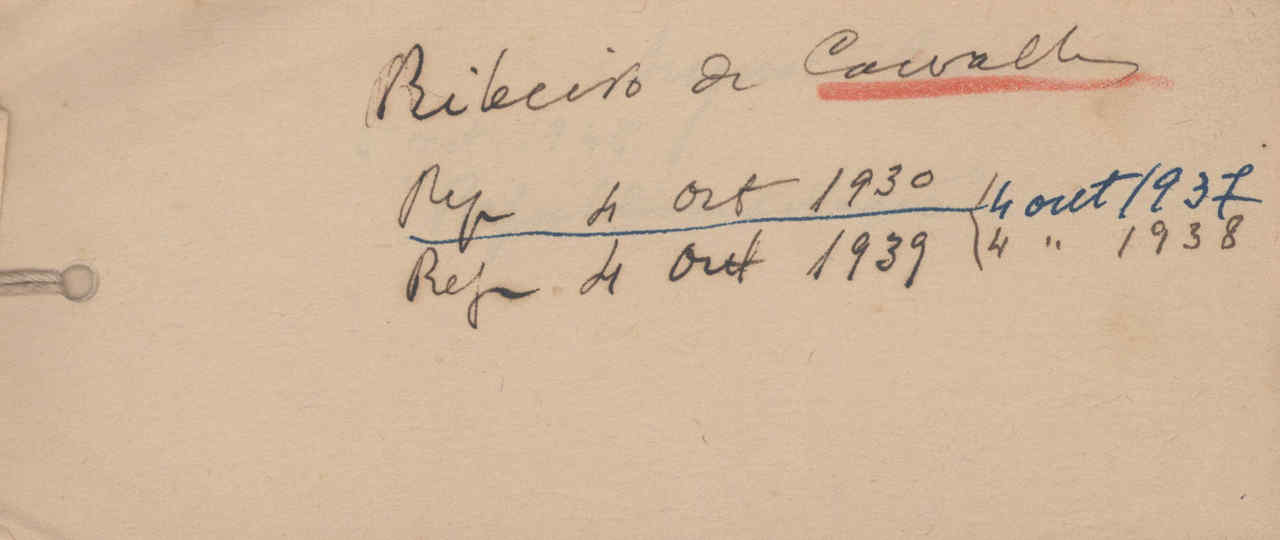 Ribeiro de Carvalho
Rep 4 Out 1930 (4 out 1937
Rep 4 Out 1939 (4 " 1938